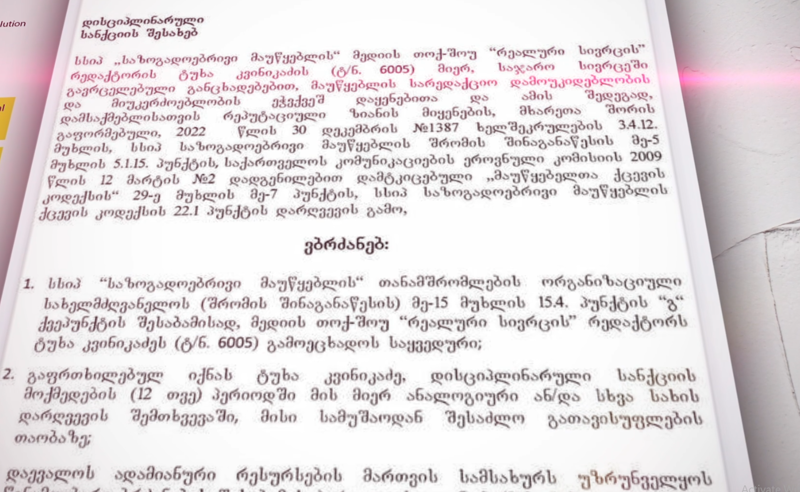 lution
al
დისციპლინარული
სანქციის შესახებ
სსიპ „საზოგადოებრივი მაუწყებლის“ მედიის თოქ-შოუ “რეალური სივრცის”
რედაქტორის ტუხა კვინიკაძის (ტ/ნ. 6005) მიერ, საჯარო სივრცეში
გავრცელებული განცხადებებით, მაუწყებლის სარედაქციო დამოუკიდებლობის
და მიუკერძოებლობის ეჭვქვეშ დაყენებითა და ამის შედეგად,
დამსაქმებლისათვის რეპუტაციული ზიანის მიყენების, მხარეთა შორის
გაფორმებული, 2022 წლის 30 დეკემბრის №1387 ხელშეკრულების 3.4.12.
მუხლის, სსიპ საზოგადოებრივი მაუწყებლის შრომის შინაგანაწესის მე-5
მუხლის 5.1.15. პუნქტის, საქართველოს კომუნიკაციების ეროვნული კომისიის 2009
წლის 12 მარტის №2 დადგენილებით დამტკიცებული „მაუწყებელთა ქცევის
კოდექსის“ 29-ე მუხლის მე-7 პუნქტის, სსიპ საზოგადოებრივი მაუწყებლის
ქცევის კოდექსის 22.1 პუნქტის დარღვევის გამო,
ვბრძანებ:
1. სსიპ “საზოგადოებრივი მაუწყებლის“ თანამშრომლების ორგანიზაციული
სახელმძღვანელოს (შრომის შინაგანაწესის) მე-15 მუხლის 15.4. პუნქტის “გ“
ქვეპუნქტის შესაბამისად, მედიის თოქ-შოუ “რეალური სივრცის” რედაქტორს
ტუხა კვინიკაძეს (ტ/ნ. 6005) გამოეცხადოს საყვედური;
2. გაფრთხილებულ იქნას ტუხა კვინიკაძე, დისციპლინარული სანქციის
მოქმედების (12 თვე) პერიოდში მის მიერ ანალოგიური ან/და სხვა სახის
დარღვევის შემთხვევაში, მისი სამუშაოდან შესაძლო გათავისუფლების
თაობაზე;
დაევალოს ადამიანური რესურსების მართვის სამსახურს უზრუნველყოს